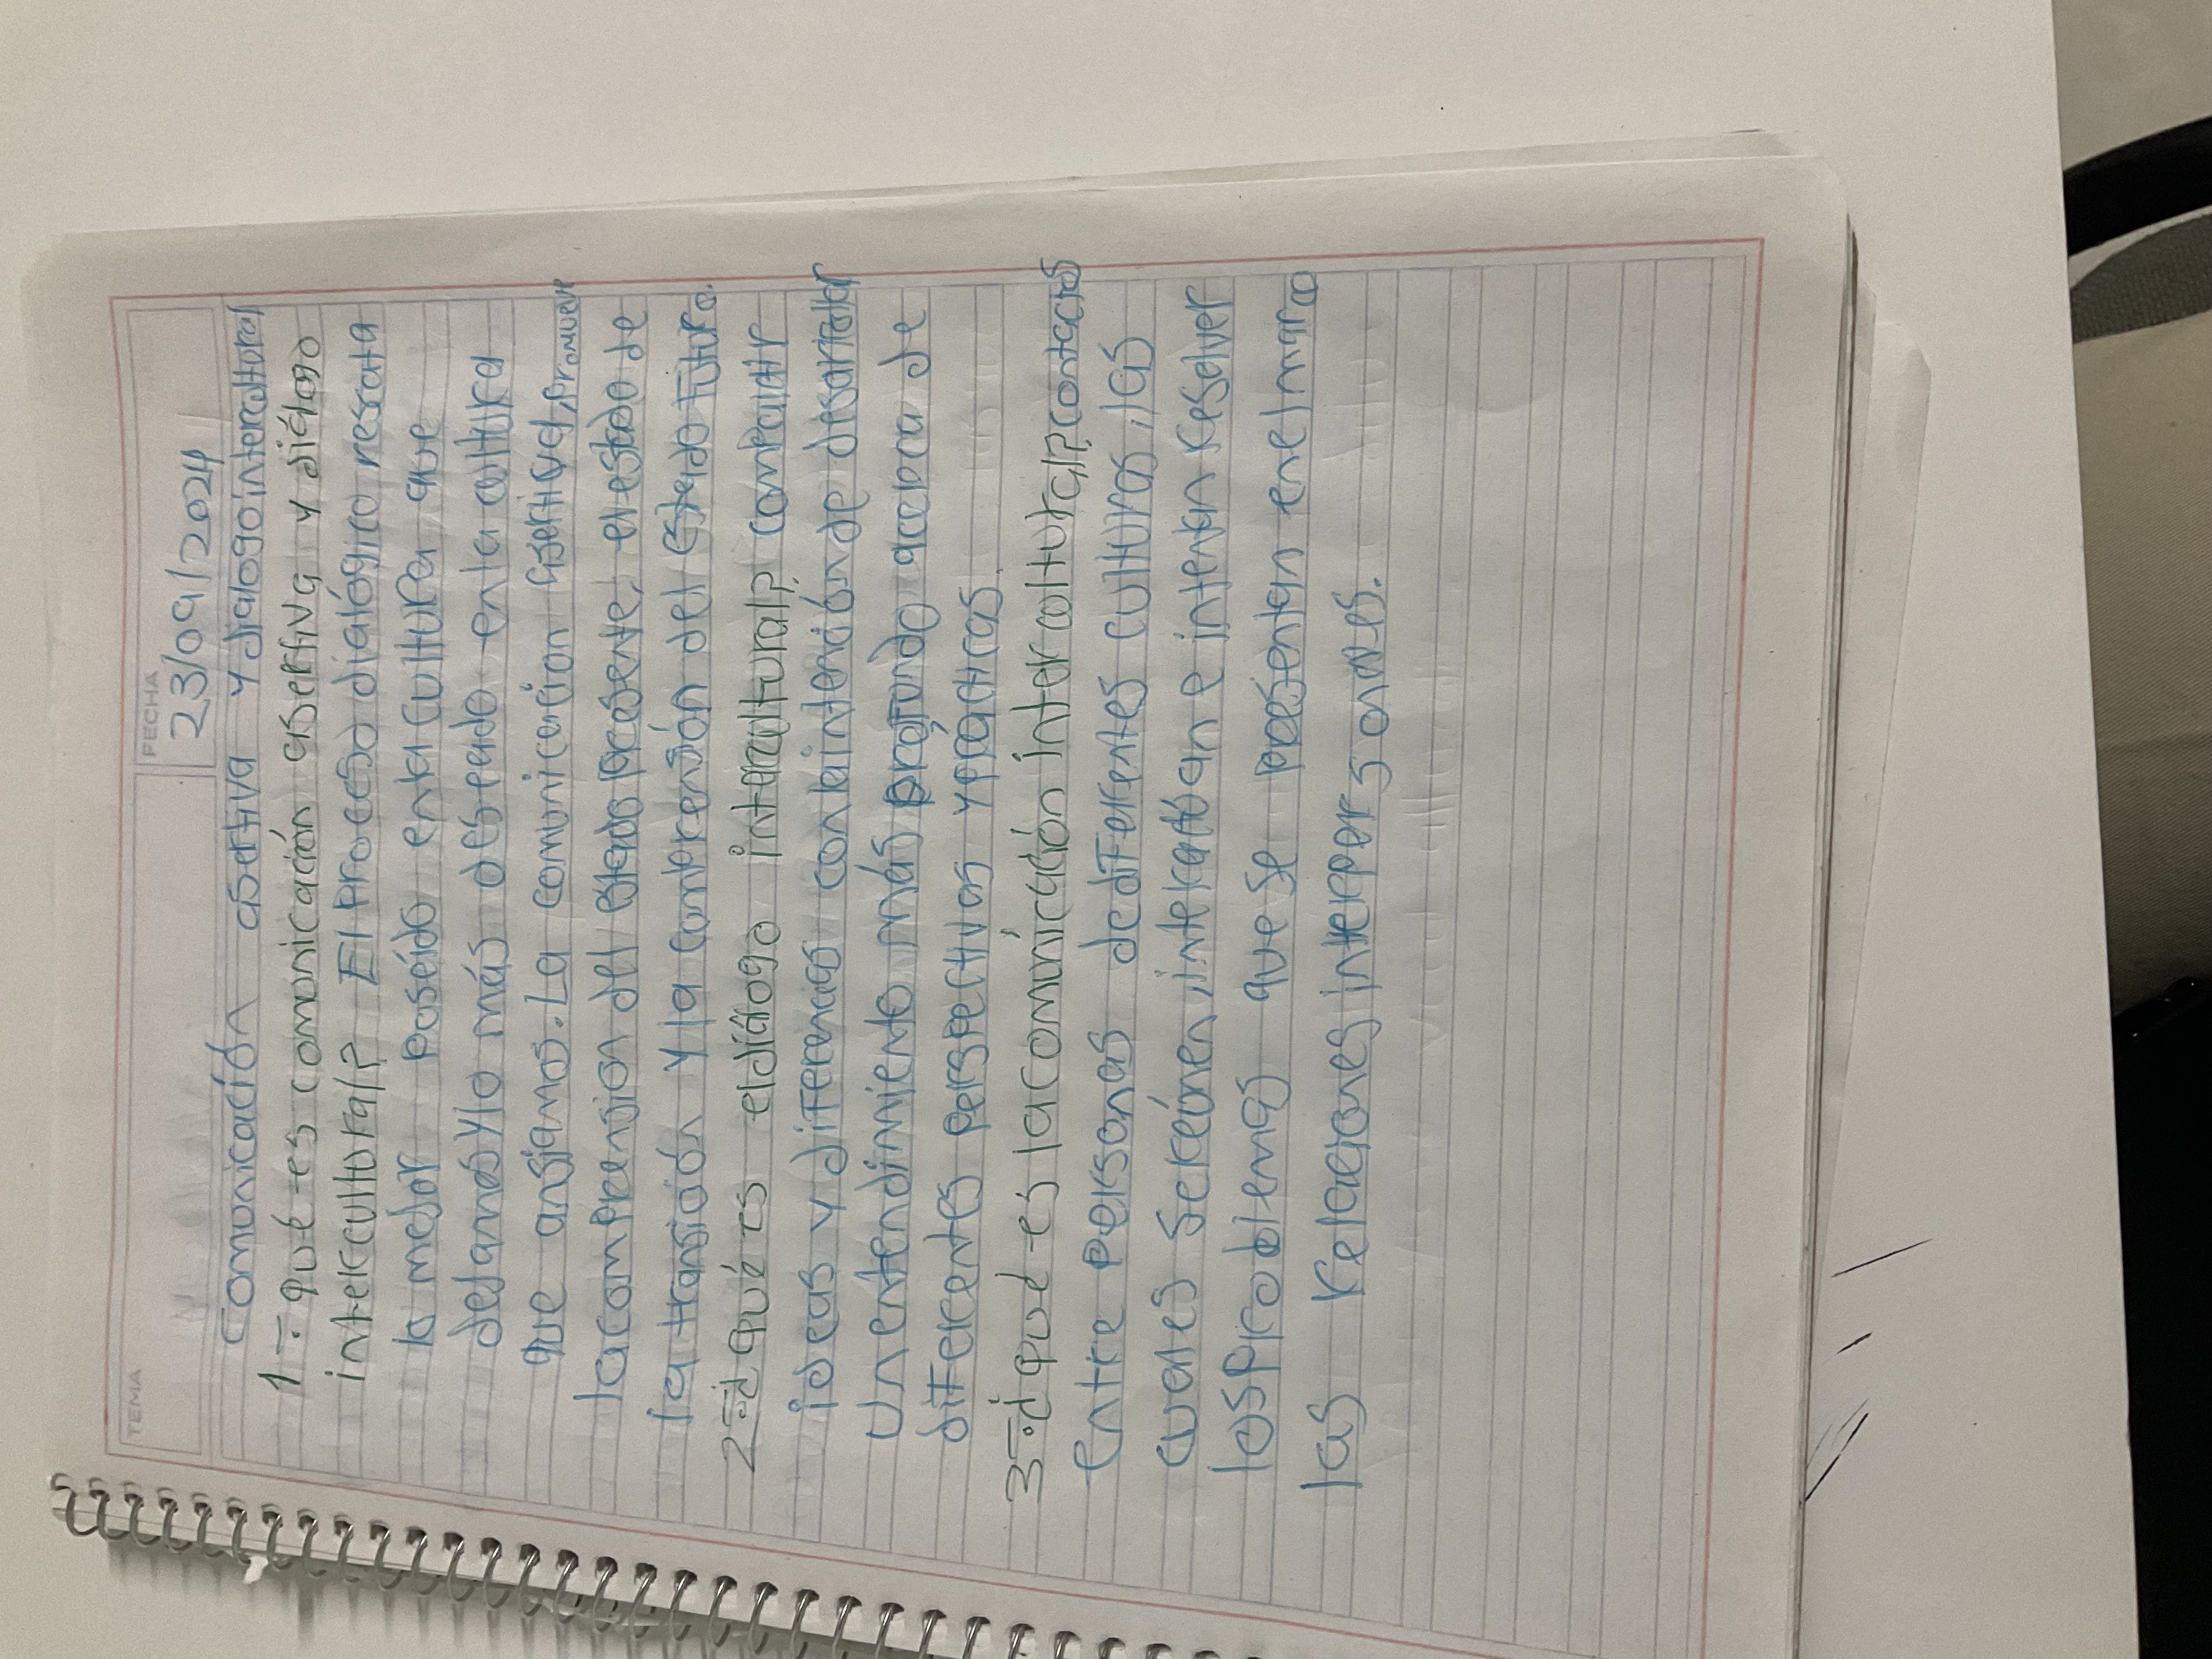 TEMA
FECHA
23/09/2024
Comunicación asertiva y dialogo intercultural
1-: qué es comunicación asertiva y diálogo
intercultural? El proceso dialógico resrata
lo mejor poseído en la cultura que
dejamos y lo más deseado en la cultura
que ansiamos. La comunicación asertiva, promueve
la comprensión del estado presente, el estado de
la transición y la comprensión del estado futuro.
2-:¿qué es el diálogo intercultural? compartir
ideas y diferencias con la intención de desarrollar
un entendimiento más profundo acerca de
diferentes perspectivas y prácticas.
3-:¿qué es la comunicación intercultural? contactos
entre personas de diferentes culturas, las
cuales se reúnen, interactúan e intentan resolver
los problemas que se presentan en el marco
las relaciones interpersonales.